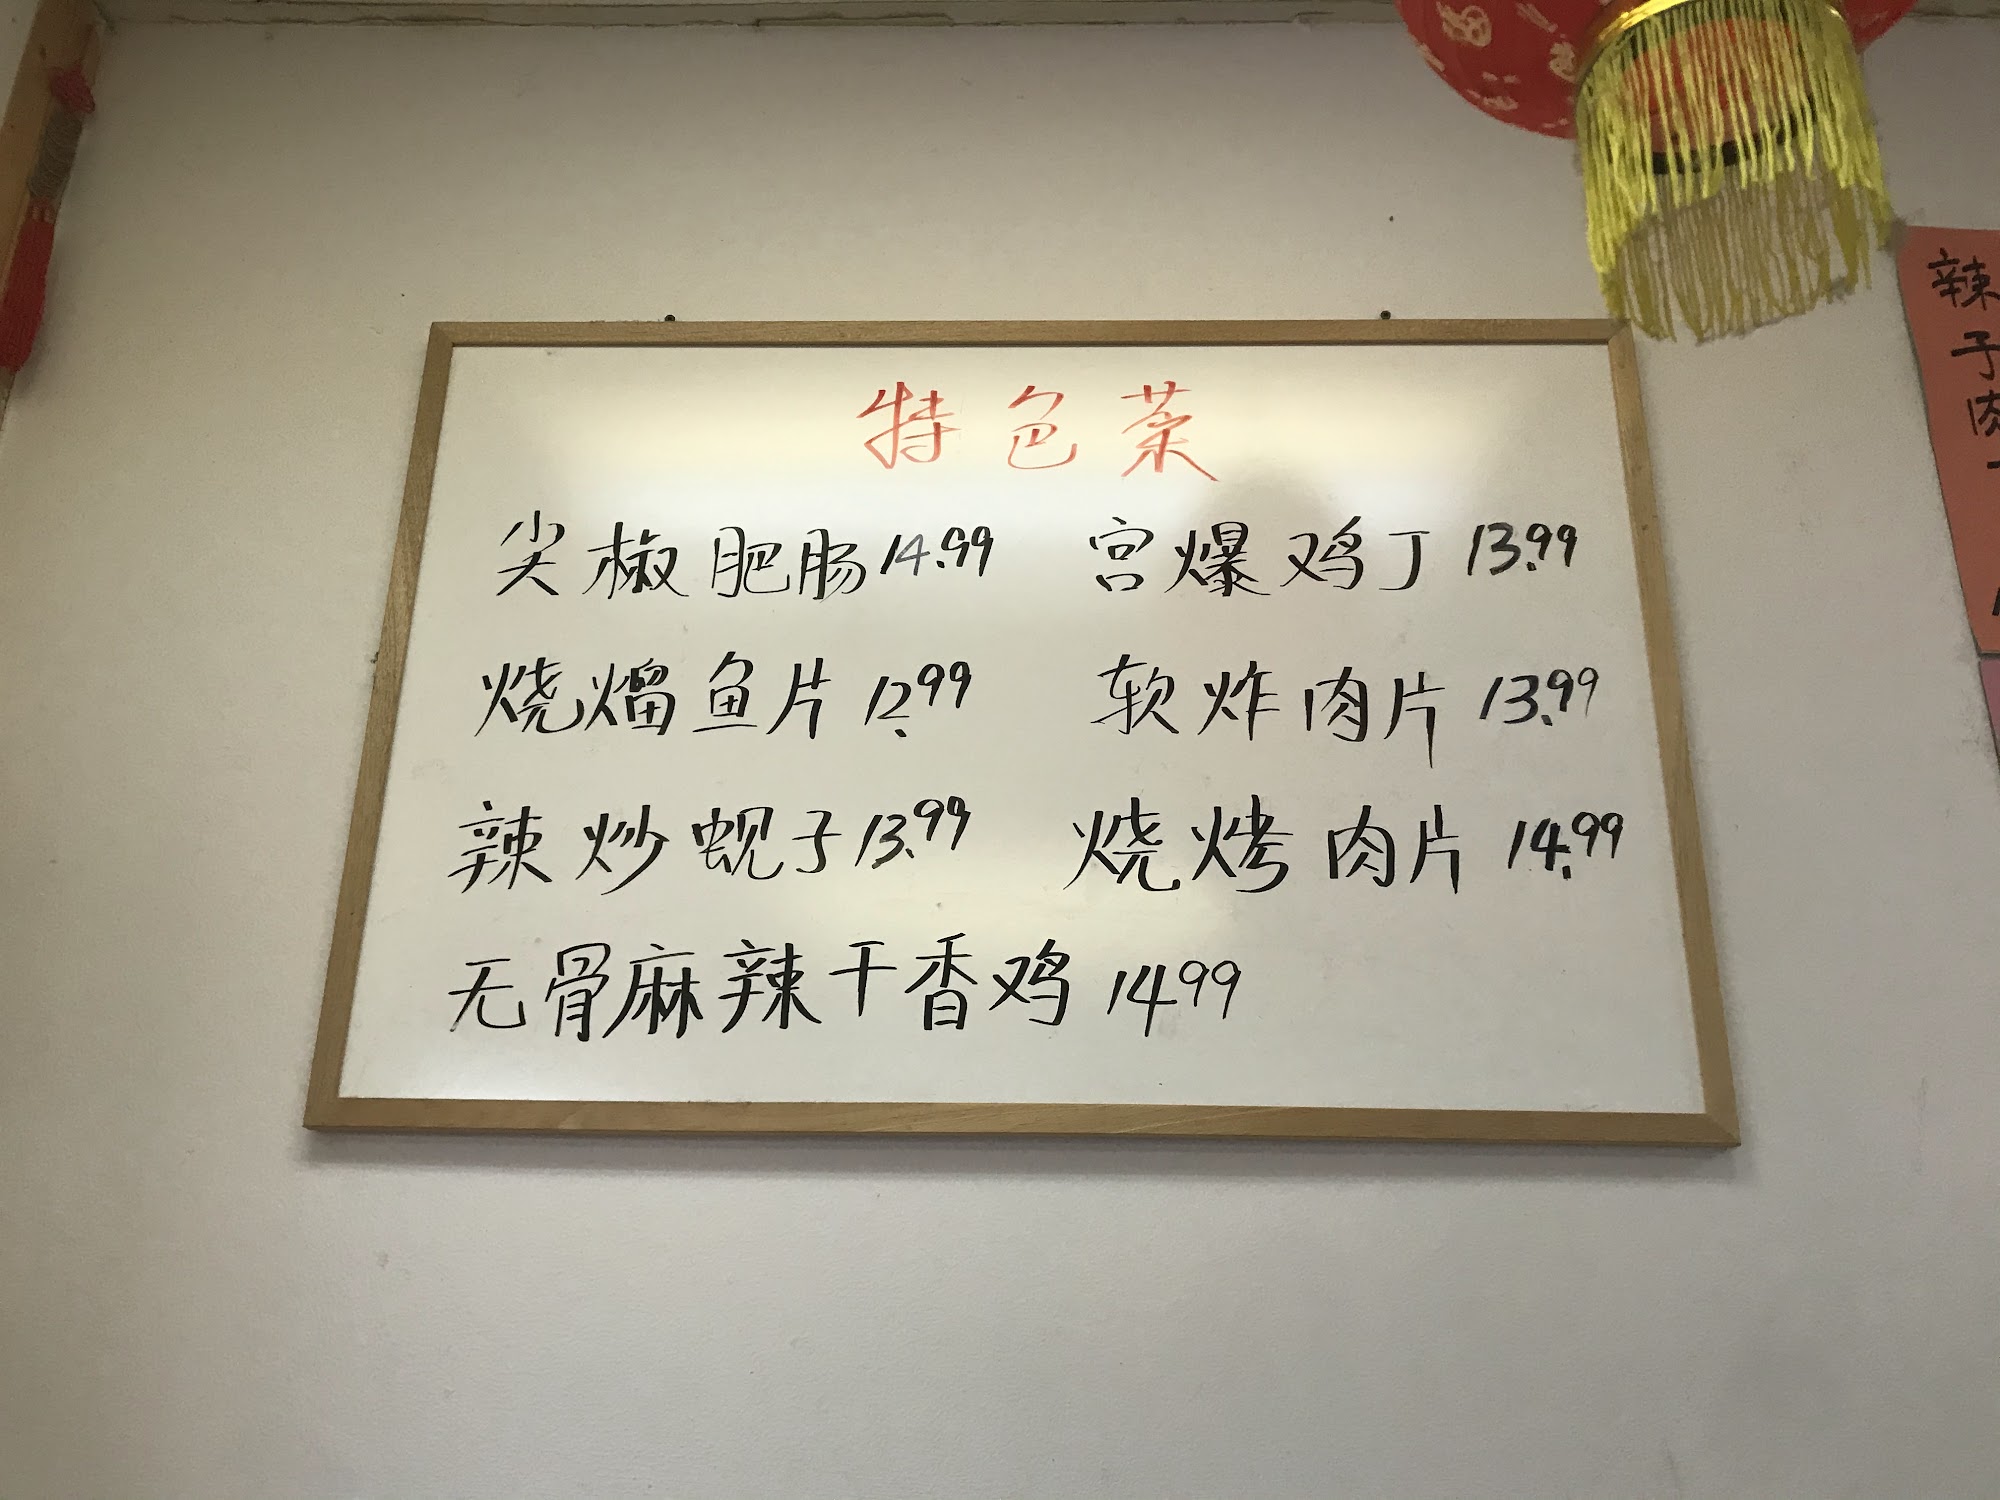 特色菜
尖椒肥肠14.99 宫爆鸡丁13.99
烧熘鱼片12.99 软炸肉片13.99
辣炒蚬子13.99 烧烤肉片14.99
无骨麻辣干香鸡 1499
辣
子
肉